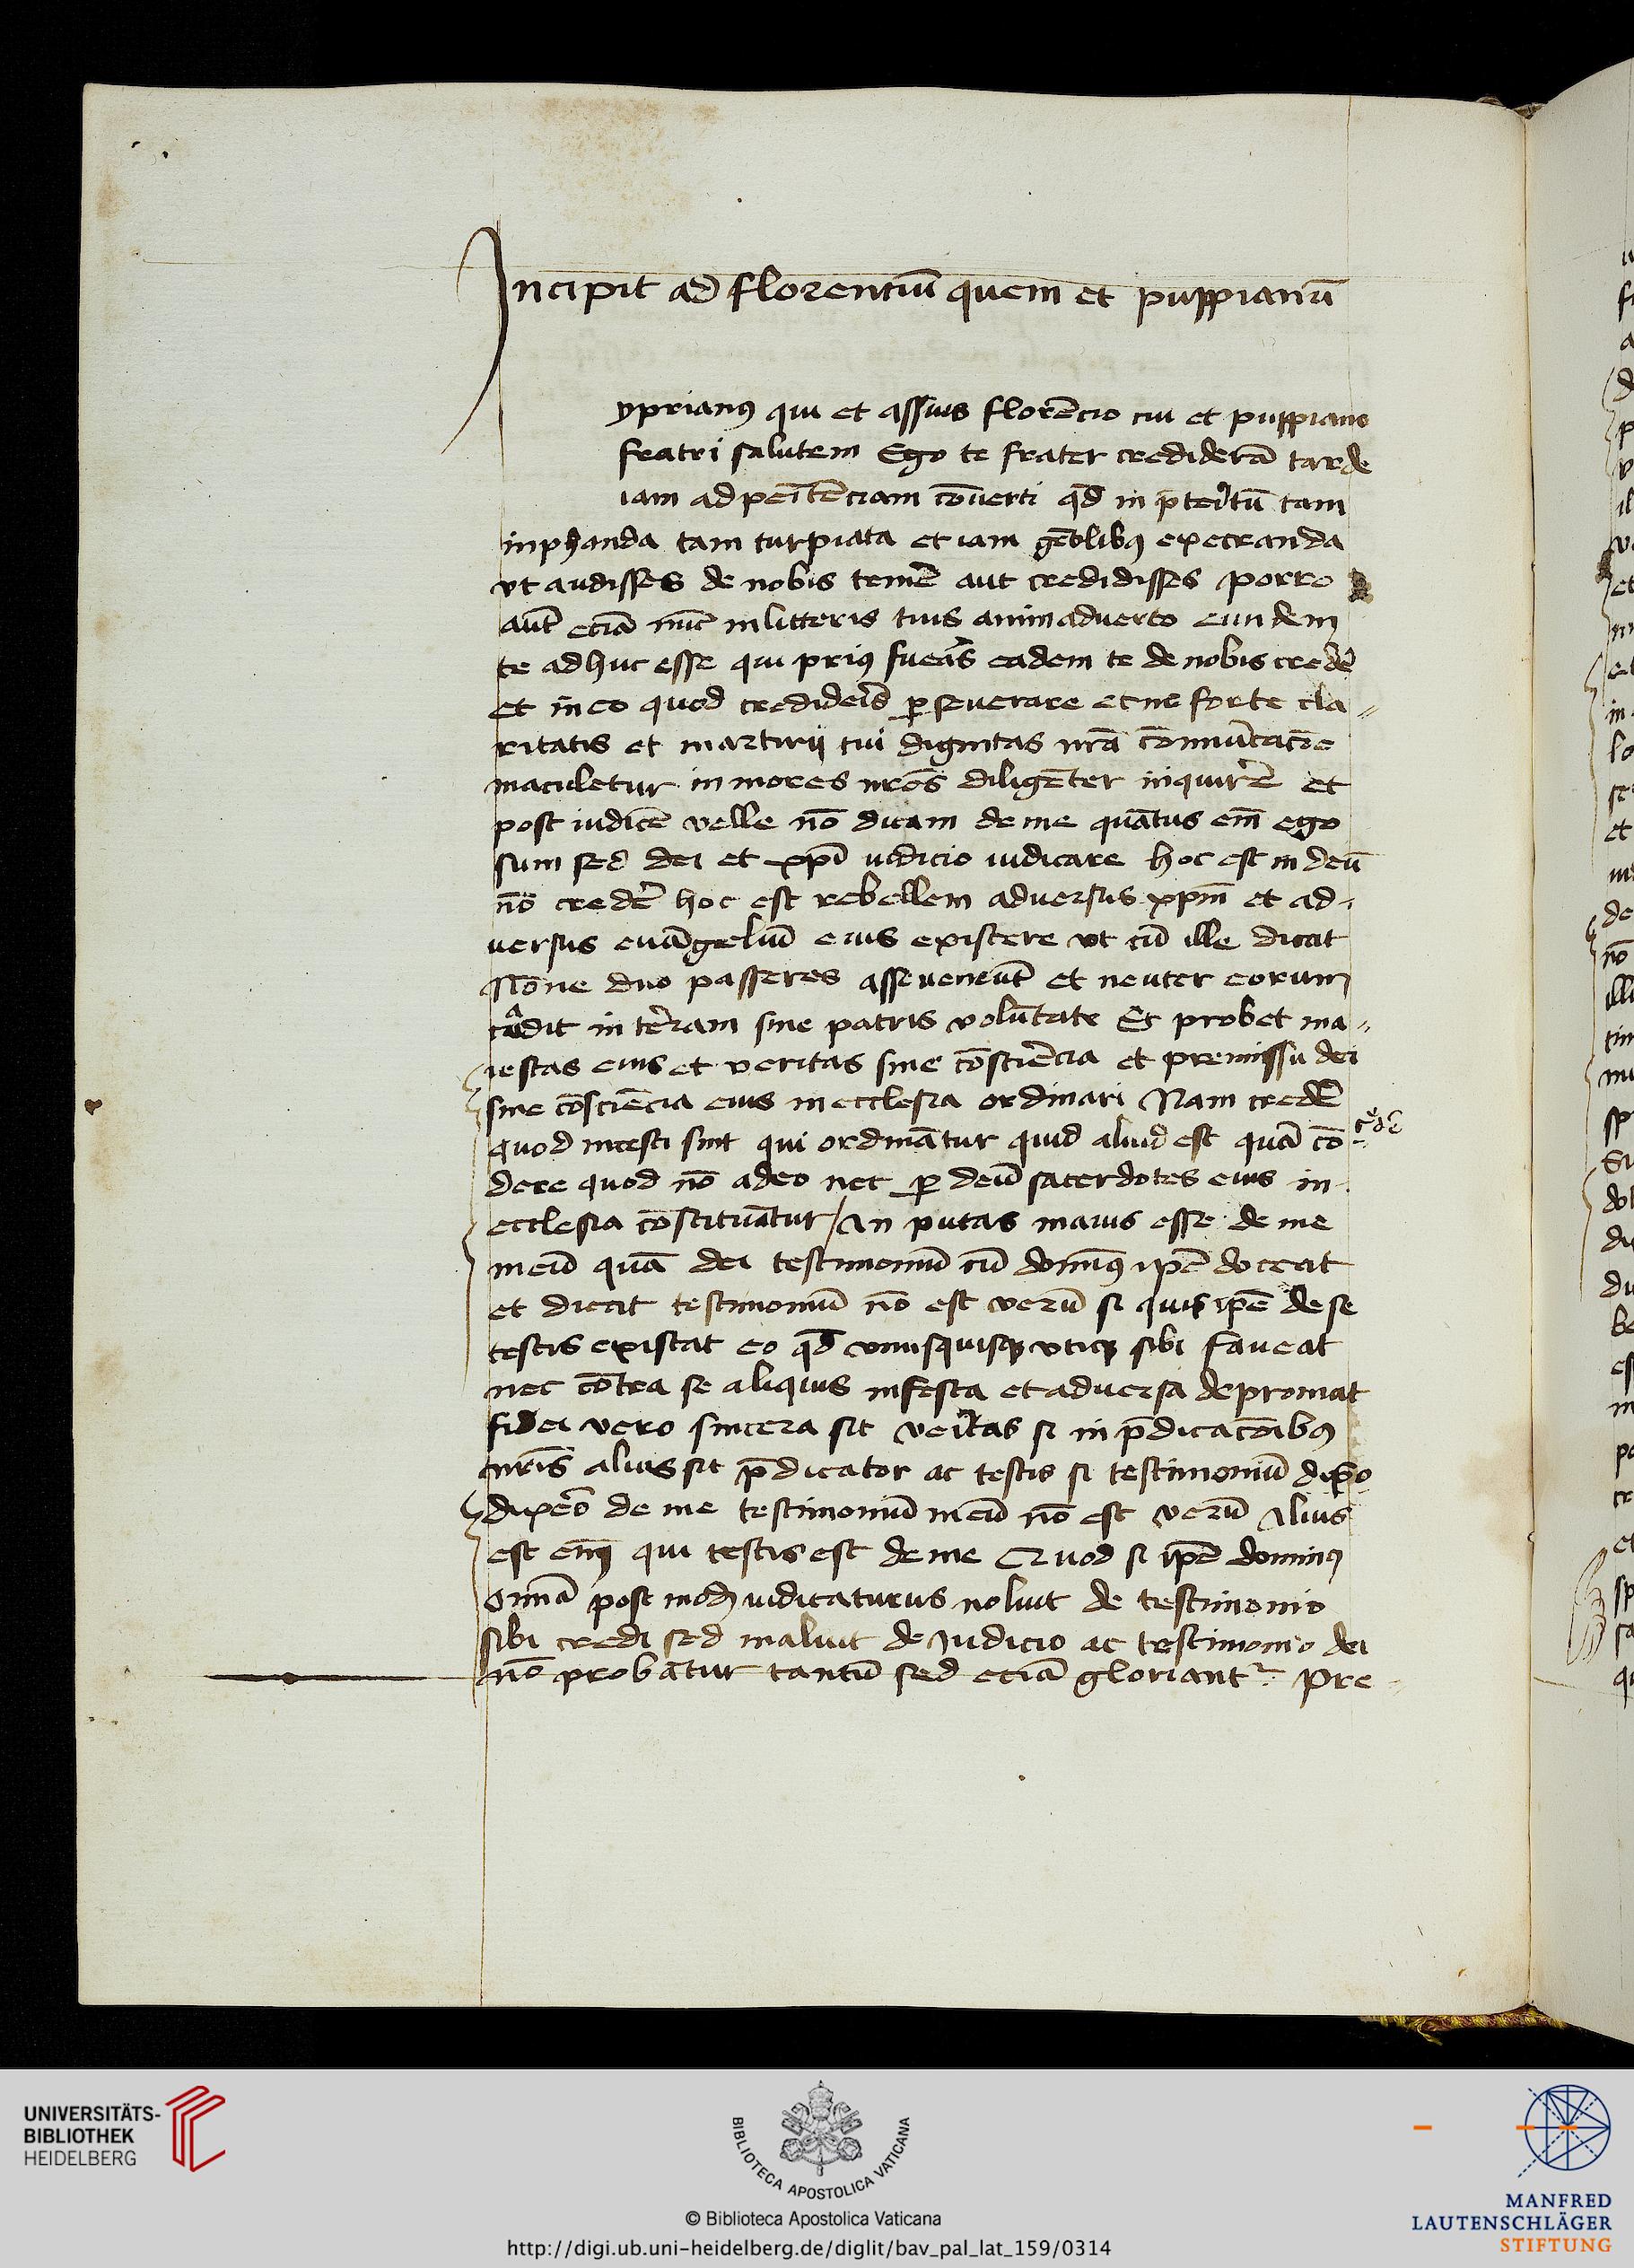 Incipit ad florenciū quem et puppianū
yprianꝰ qui et assius florēcio cui et puppiano
fratri salutem Ego te frater crediderā tarde
iam ad peītēciam cōuerti qd̄ in p̄teritū tam
inphanda tam turpiata et iam gētilibꝰ execranda
vt audisses de nobis temē aut credidisses porro
aut̄ eciā nūc in litteris tuis animaduerto eundem
te adhuc esse qui priꝰ fueās eadem te de nobis credē
et in eo quod credideīs ꝑseuerare et ne forte cla-
ritatis et martirij tui dignitas nr̄a cōmūicacōe
maculetur in mores nr̄os diligēter inquirē et
post iudicē velle nō dicam de me quātus em̄ ego
sum sed dei et xp̄i iudicio iudicare hoc est in deū
nō credē hoc est rebellem aduersus xp̄m et ad-
uersus euāgeliū eius existere vt cū ille dicat
Nōne duo passeres asse veneūt et neuter eorum
cadit in terram sine patris volūtate Et probet ma-
iestas eius et veritas sine cōsciēcia et premissu dei
sine cōsciēcia eius in ecclesia ordinari Nam credē
quod incesti sint qui ordināntur quid aliud est quā cō
cͤdē
dere quod nō a deo nec ꝑ deū sacerdotes eius in
ecclesia cōstituātur / An putas maius esse de me
meū quā dei testimoniū cū dominꝰ ip̄e doceat
et dicat testimoniū nō est verū si quis ip̄e de se
testis existat eo qd̄ vnusquisqꝫ vtiqꝫ sibi faueat
nec cōtra se aliquis infesta et aduersa depromat
fidei vero sincera sit veritas si in p̄dicacōibꝰ
nr̄is alius sit p̄dicator ac testis si testimoniū dixo
dixeō de me testimoniū meū nō est verū Alius
est em̄ qui testis est de me Quod si ip̄e dominꝰ
omā post modū iudicaturus noluit de testimonio
sibi credi sed maluit de Judicio ac testimonio dei
nō probatur tantū sed eciā gloriantur pre-
UNIVERSITÄTS-
BIBLIOTHEK
HEIDELBERG
BIBLIOTECA APOSTOLICA VATICANA
© Biblioteca Apostolica Vaticana
http://digi.ub.uni-heidelberg.de/diglit/bav_pal_lat_159/0314
MANFRED
LAUTENSCHLÄGER
STIFTUNG